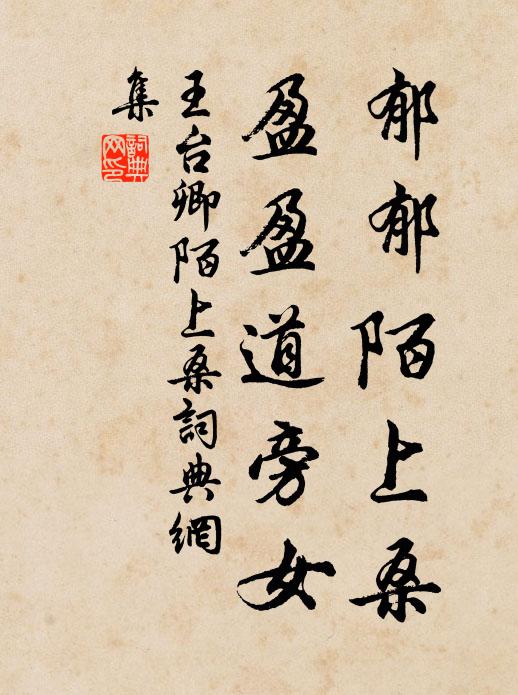 郁郁陌上桑
盈盈道旁女
王台卿陌上桑詞典網
集
詞典网印